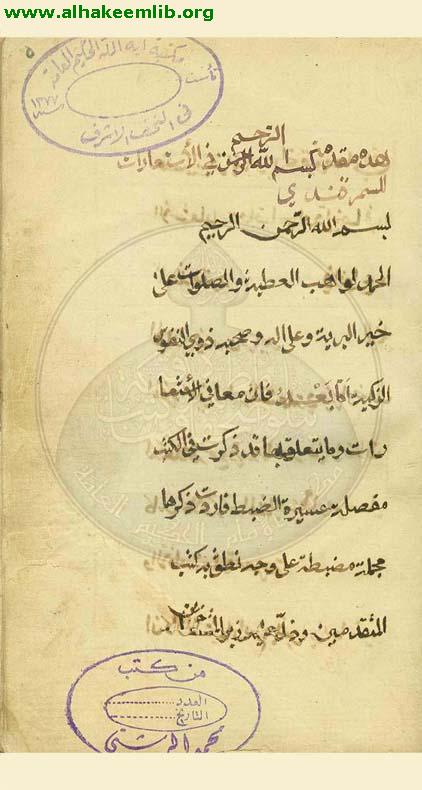 www.alhakeemlib.org
مكتبة اية الله الحكيم العامة
تأسست
سنة ١٣٧٧
في النجف الاشرف
الرحيم
هذه مقدمة بسم الله الرحمن في الأستعارات
السمرقندي
بسم الله الرحمن الرحيم
الحمد لواهب العطية والصلوات على
خير البرية وعلى اله وصحبه ذوي النفوس
الزكية اما بعد فان معاني الأستعا
رات وما يتعلق بها قد ذكرت في الكتب
مفصلة عسيرة الضبط فاردت ذكرها
مجملة مضبطة على وجه نطق به كتب
المتقدمين ودل عليه زبر المتأخرين
من كتب
العدد
التاريخ